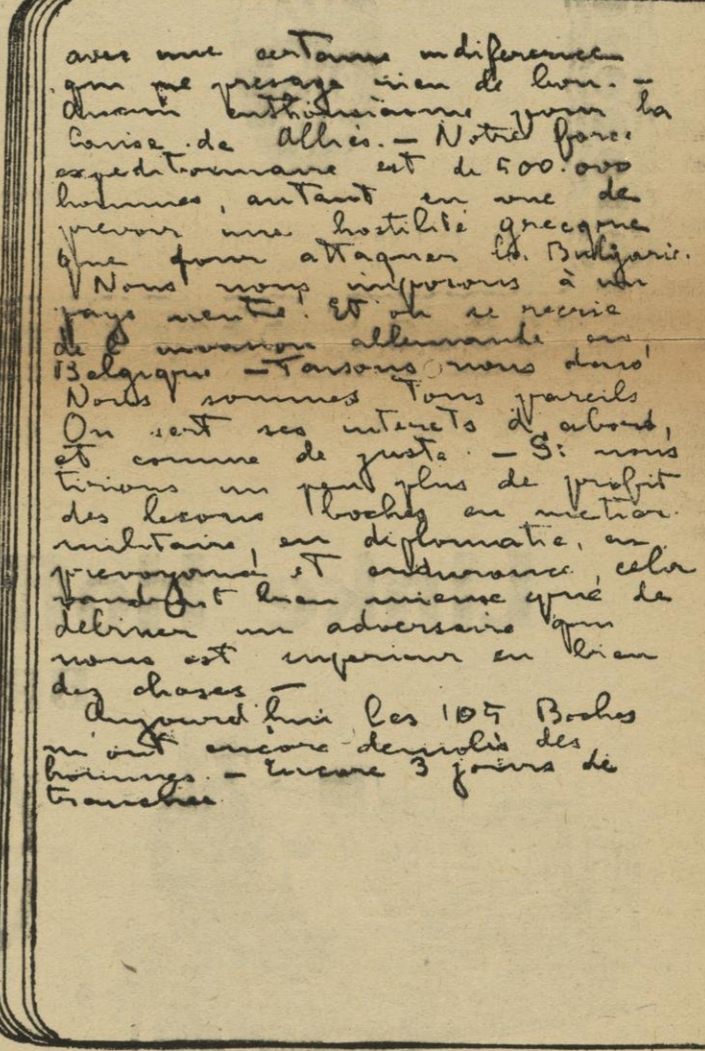 avec une certaine indiference
qui ne presage rien de bon. —
Aucun enthousiasme pour la
Cause de Alliés. — Notre force
expeditionnaire est de 500.000
hommes, autant en vue de
prevoir une hostilité grecque
que pour attaquer la Bulgarie.
Nous nous imposons à un
pays neutre. Et on se recrie
de l'invasion allemande en
Belgique — Taisons nous donc
Nous sommes tous pareils
On sert ses interets d'abord,
et comme de juste. — Si nous
tirions un peu plus de profit
des lecons boches en metier
militaire, en diplomatie, en
prevoyance et endurance, cela
vaudrait bien mieux que de
debiner un adversaire qui
nous est superieur en bien
des choses —
Aujourd'hui les 105 Boches
m'ont encore demolis des
hommes. — Encore 3 jours de
tranchee